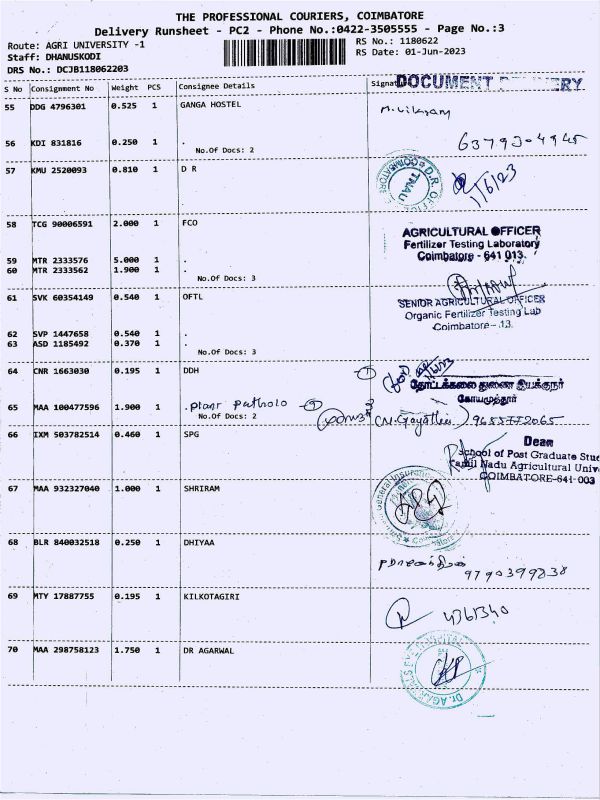 THE PROFESSIONAL COURIERS, COIMBATORE
Delivery Runsheet - PC2 - Phone No.:0422-3505555 - Page No.:3
Route: AGRI UNIVERSITY -1
RS No.: 1180622
Staff: DHANUSKODI
RS Date: 01-Jun-2023
DRS No.: DCJB118062203
S No Consignment No Weight PCS Consignee Details Signat
DOCUMENT
55 DDG 4796301 0.525 1 GANGA HOSTEL
M. Vikram
56 KDI 831816 0.250 1 .
No.Of Docs: 2
57 KMU 2520093 0.810 1 D R
D.R. OFFICE TNAU COIMBATORE
1/6/23
58 TCG 90006591 2.000 1 FCO
AGRICULTURAL OFFICER
Fertilizer Testing Laboratory
Coimbatore - 641 013.
59 MTR 2333576 5.000 1 .
60 MTR 2333562 1.900 1 .
No.Of Docs: 3
61 SVK 60354149 0.540 1 OFTL
SENIOR AGRICULTURAL OFFICER
Organic Fertilizer Testing Lab
Coimbatore - 13.
62 SVP 1447658 0.540 1 .
63 ASD 1185492 0.370 1 .
No.Of Docs: 3
64 CNR 1663030 0.195 1 DDH
தோட்டக்கலை துணை இயக்குநர்
கோயமுத்தூர்
65 MAA 100477596 1.900 1 . plant patholo
No.Of Docs: 2
66 IXM 503782514 0.460 1 SPG
Dean
School of Post Graduate Stu
Tamil Nadu Agricultural Univ
COIMBATORE-641 003
67 MAA 932327040 1.000 1 SHRIRAM
General Insurance
68 BLR 840032518 0.250 1 DHIYAA
9790399838
69 MTY 17887755 0.195 1 KILKOTAGIRI
70 MAA 298758123 1.750 1 DR AGARWAL
Dr. AGARWAL'S EYE HOSPITAL